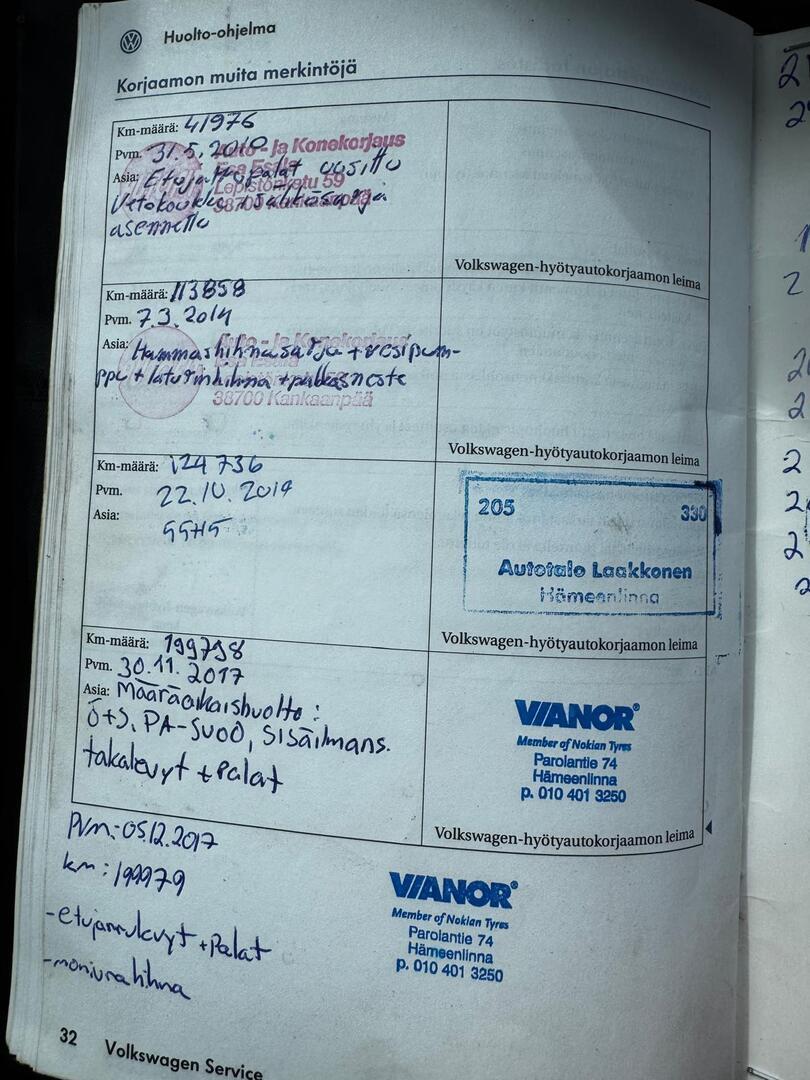 Huolto-ohjelma
Korjaamon muita merkintöjä
Km-määrä: 41976
Pvm. 31.5.2010
Auto - ja Konekorjaus
Esa Esala
Lepistönkatu 59
38700 Kankaanpää
Asia: Etujarrupalat uusittu
Vetokoukku + sähkösarja
asennettu
Volkswagen-hyötyautokorjaamon leima
Km-määrä: 113858
Pvm. 7.3.2014
Auto - ja Konekorjaus
38700 Kankaanpää
Asia: Hammashihnasarja + vesipum-
ppu + laturinhihna + pakkasneste
Volkswagen-hyötyautokorjaamon leima
Km-määrä: 124736
Pvm. 22.10.2014
Asia: 55H5
205 330
Autotalo Laakkonen
Hämeenlinna
Volkswagen-hyötyautokorjaamon leima
Km-määrä: 199798
Pvm. 30.11.2017
Asia: Määräaikaishuolto:
Ö+S, PA-SUOD, Sisäilmans.
takalevyt + Palat
VIANOR
Member of Nokian Tyres
Parolantie 74
Hämeenlinna
p. 010 401 3250
Volkswagen-hyötyautokorjaamon leima
Pvm: 05.12.2017
km: 199979
-etujarrulevyt + Palat
-moniurahihna
VIANOR
Member of Nokian Tyres
Parolantie 74
Hämeenlinna
p. 010 401 3250
32 Volkswagen Service